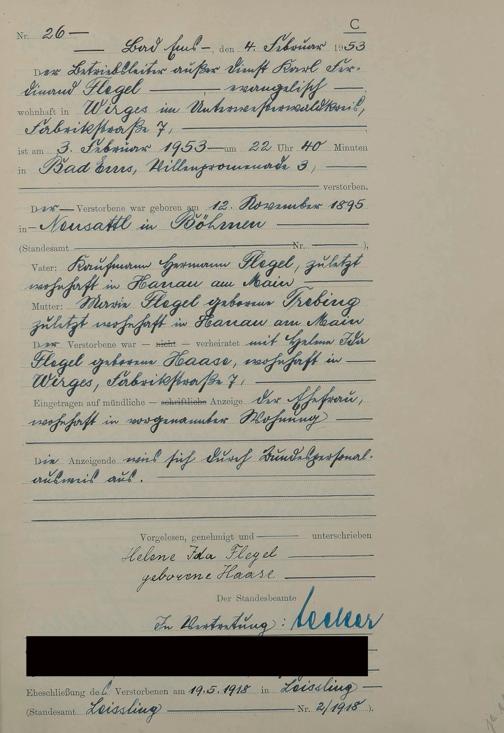 C
Nr. 26
Bad Ems, den 4. Februar 1953
Der Betriebsleiter außer Dienst Karl Fer-
dinand Flegel evangelisch
wohnhaft in Wirges im Unterwesterwaldkreis,
Fabrikstraße 7,
ist am 3. Februar 1953 um 22 Uhr 40 Minuten
in Bad Ems, Villenpromenade 3,
verstorben.
Der Verstorbene war geboren am 12. November 1895
in Neusattl in Böhmen
(Standesamt Nr. ),
Vater: Kaufmann Hermann Flegel, zuletzt
wohnhaft in Hanau am Main
Mutter: Marie Flegel geborene Trebing
zuletzt wohnhaft in Hanau am Main
Der Verstorbene war — nicht — verheiratet mit Helene Ida
Flegel geborene Haase, wohnhaft in
Wirges, Fabrikstraße 7,
Eingetragen auf mündliche — schriftliche — Anzeige der Ehefrau,
wohnhaft in vorgenannter Wohnung
Die Anzeigende wies sich durch Bundespersonal-
ausweis aus.
Vorgelesen, genehmigt und unterschrieben
Helene Ida Flegel
geborene Haase
Der Standesbeamte
In Vertretung:
Eheschließung des Verstorbenen am 19.5.1918 in Leissling
(Standesamt Leissling Nr. 2/1918 ).